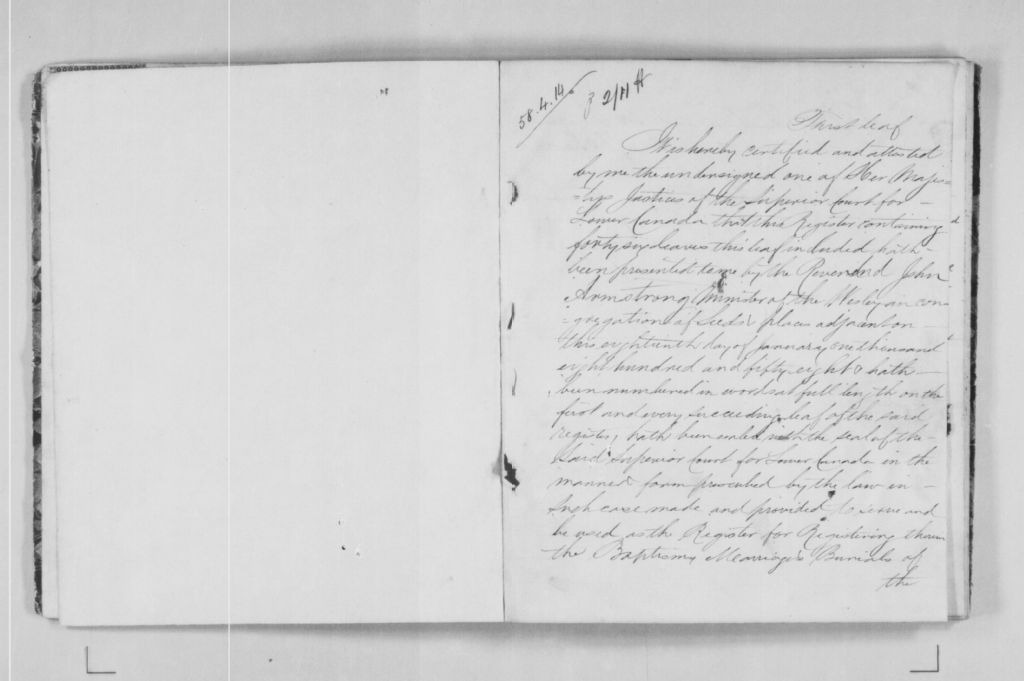 58.4.14
2/11
First leaf
It is hereby certified and attested
by me the undersigned one of Her Majes=
=tys Justices of the Superior Court for -
Lower Canada that this Register containing
forty six leaves this leaf included hath -
been presented to me by the Reverend John
Armstrong Minister of the Wesleyan con=
=gregation of Leeds & places adjacent on -
this eighteenth day of January one thousand
eight hundred and fifty eight & hath -
been numbered in words at full length on the
first and every succeeding leaf of the said
register, hath been sealed with the seal of the -
Said Superior Court for Lower Canada in the
manner & form prescribed by the law in -
Such case made and provided to serve and
be used as the Register for Registering therein
the Baptisms Marriages Burials of
the